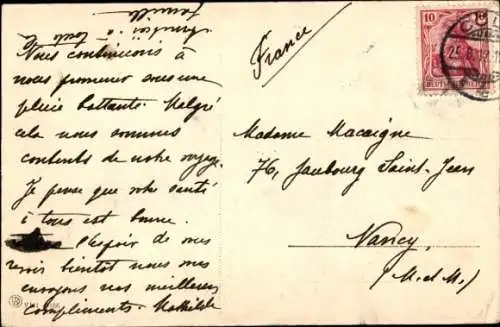 Nous continuons à
nous promener sous une
pluie battante. Malgré
cela nous sommes
contents de notre voyage.
Je pense que votre santé
à tous est bonne.
l'Espoir de vous
revoir bientôt nous vous
envoyons nos meilleurs
compliments. Mathilde
famille
à toute la
France
10
10
Madame Macaigne
76, Faubourg Saint-Jean
Nancy.
(M. et M.)